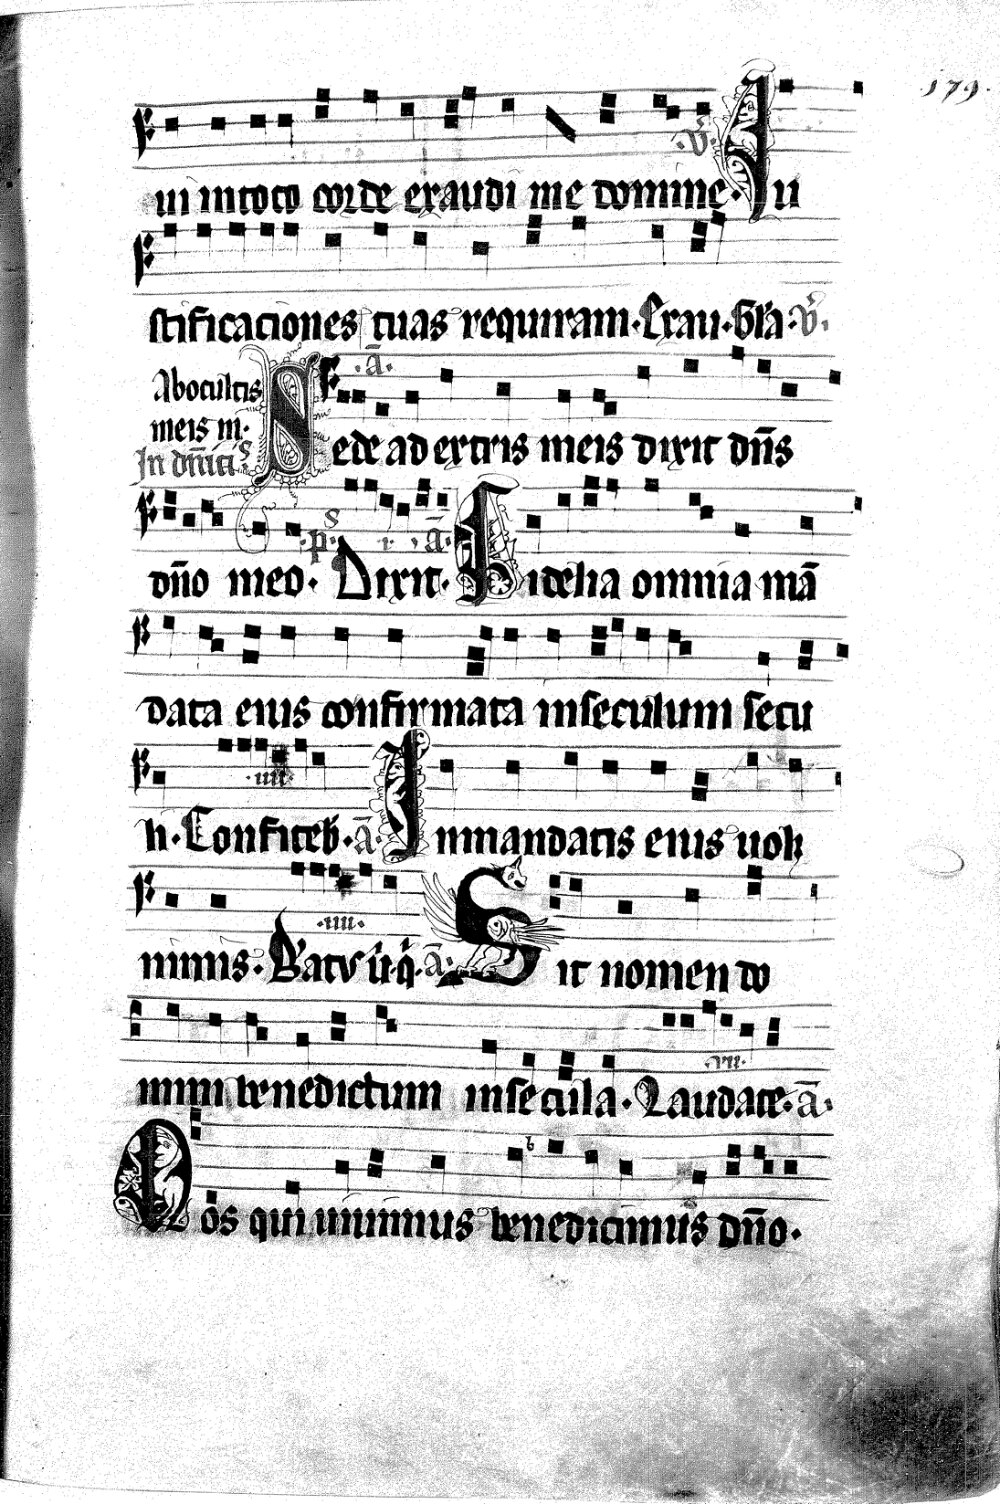 179.
ui in toto corde exaudi me domine. v̄. Iu
stificaciones tuas requiram. Exau. Gl'a. v̄.
Ab ocultis
meis m.
In dn̄icis
ā. Sede ad extris meis dixit dn̄s
dn̄o meo. ps. Dixit. ā. Fidelia omnia mā
data eius confirmata in seculum secu
li. Confiteb. .iiii. ā. In mandatis eius uolȩ
nimis. .iiii. Batvs ū. q̄. ā. Sit nomen do
mini benedictum in secula. Laudate. .vii. ā.
Nos qui uiuimus benedicimus dn̄o.